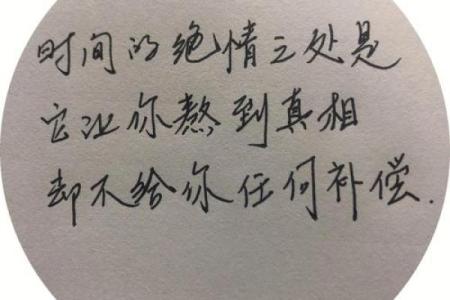 时间的绝情之处是
它让你熬到真相
却不给你任何补偿.